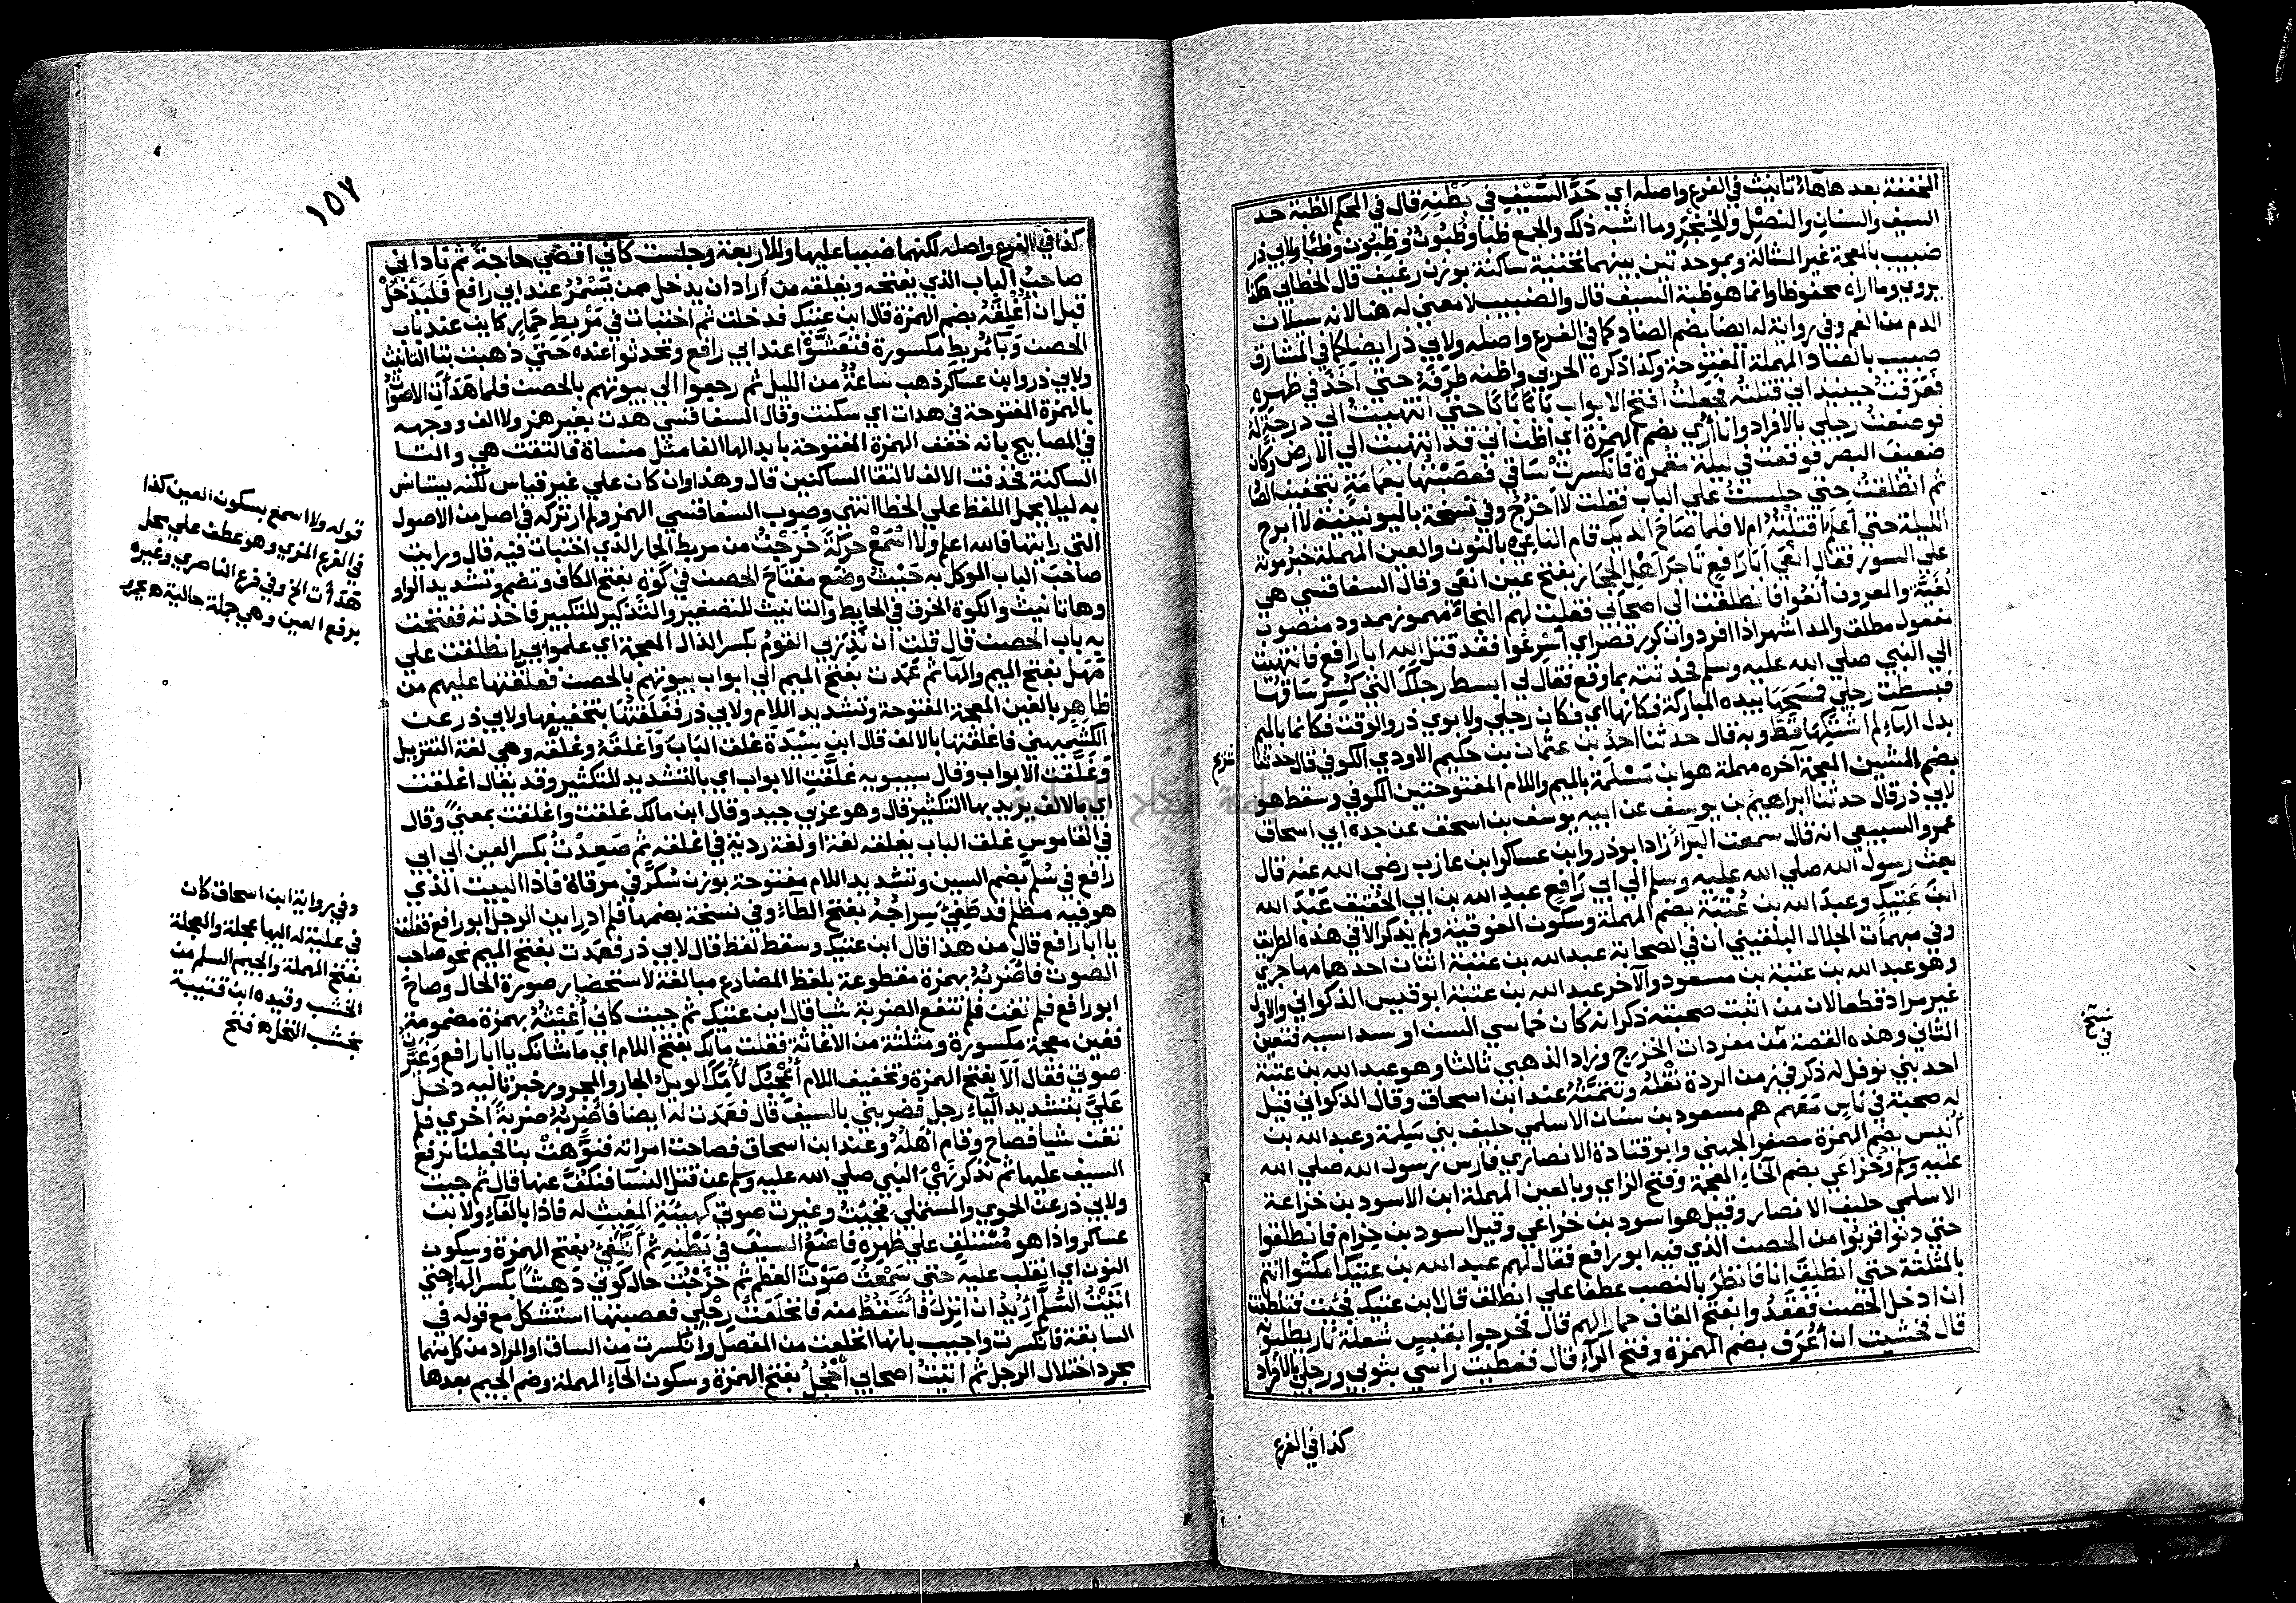 المخففة بعدها هاء تانيث في الفرع واصله اي حَدَّ السَّيْفِ في بَطْنِهِ قال في المحكم الظبة حد
السيف والسنان والنصل والخنجر وما اشبه ذلك والجمع ظبا وظبون وظبون وظبا ولابي ذر
ضبيب بالمعجمة غير المشالة وبموحدتين بينهما تحتية ساكنة بوزن رغيف قال الخطابي هكذا
يروي وما اراه محفوظا وانما هو ظبة السيف قال والضبيب لا معني له هنا لانه سيلان
الدم من الفم وفي رواية له ايضا بضم الضاد كما في الفرع واصله ولابي ذر ايضا كما في المشارق
صبيب بالصاد المهملة المفتوحة وكذا ذكره الحربي واظنه طرفه حتي اخذ في ظهره
فعرفت حينئذ اني قتلته فجعلت افتح الابواب بابا بابا حتي انتهيت الي درجة له
فوضعت رجلي بالافراد وانا اري بضم الهمزة اي اظن اني قد انتهيت الي الارض وكان
ضعيف البصر فوقعت في ليلة مقمرة فانكسرت ساقي فعصبتها بعمامة بتخفيف الصا
ثم انطلقت حتي جلست علي الباب فقلت لا اخرج وفي نسخة باليونينية لا ابرح
الليلة حتي اعلم اقتلته ام لا فلما صاح الديك قام الناعي بالنون والعين المهملة خبر موته
علي السور فقال انعي ابا رافع تاجر اهل الحجاز بفتح عين انعي وقال السفاقسي هي
لغية والمعروف انعوا فانطلقت الي اصحابي فقلت لهم النجاء مهموز ممدود منصوب
مفعول مطلق والمد اشهر اذا افرد وان كرر قصر اي اسرعوا فقد قتل الله ابا رافع فانتهيت
الي النبي صلي الله عليه وسلم فحدثته بما وقع فقال لي ابسط رجلك التي كسر ساقها
فبسطت رجلي فمسحها بيده المباركة فكانها اي فكان رجلي ولابوي ذر والوقت فكانما بالميم
بدل الهاء لم اشتكها قط وبه قال حدثنا احمد بن عثمان بن حكيم الاودي الكوفي قال حدثنا
شريح
بضم الشين المعجمة اخره مهملة هو ابن مسلمة بالميم واللام المفتوحتين الكوفي وسقط هو
لابي ذر قال حدثنا ابراهيم بن يوسف عن ابيه يوسف بن اسحق عن جده ابي اسحاق
عمرو السبيعي انه قال سمعت البراء زاد ابو ذر وابن عساكر ابن عازب رضي الله عنه قال
بعث رسول الله صلي الله عليه وسلم الي ابي رافع عبد الله بن ابي الحقيق عبد الله
ابن عتيك وعبد الله بن عتبة بضم المهملة وسكون الفوقية ولم يذكر الا في هذه الطريق
وفي مبهمات الجلال البلقيني ان في الصحابة عبد الله بن عتبة اثنان احدهما مهاجري
وهو عبد الله بن عتبة بن مسعود والآخر عبد الله بن عتبة ابو قيس الذكواني والاول
غير مراد قطعا لان من اثبت صحبته ذكر انه كان خماسي السن او سداسيه فتعين
الثاني وهذه القصة من مفردات الخزرج وزاد الذهبي ثالثا وهو عبد الله بن عتبة
احد بني نوفل له ذكر في زمن الردة نقله وتتمته عند ابن اسحاق وقال الذكواني قيل
له صحبة في ناس معهم هم مسعود بن سنان الاسلمي حليف بني سلمة وعبد الله بن
انيس بضم الهمزة مصغر الجهني وابو قتادة الانصاري فارس رسول الله صلي الله
عليه وسلم وخزاعي بضم الخاء المعجمة وفتح الزاي وبالعين المهملة ابن الاسود بن خزاعة
الاسلمي حليف الانصار وقيل هو اسود بن خزاعي وقيل اسود بن حزام فانطلقوا
حتي دنوا قربوا من الحصن الذي فيه ابو رافع فقال لهم عبد الله بن عتيك امكثوا انتم
بالمثلثة حتي انطلق انا فانظر بالنصب عطفا علي انطلق قال ابن عتيك فجئت فتلطفت
ان ادخل الحصن ففقدوا بفتح القاف حمارا لهم قال فخرجوا بقبس شعلة نار يطلبونه
قال فخشيت ان اُعْرَف بضم الهمزة وفتح الراء قال فغطيت راسي بثوبي ورجلي بالافراد
كذا في الفرع
نسخة
في
١٥٧
كذا في الفرع واصله لكنهما ضببا عليها وللاربعة وجلست كاني اقضي حاجة ثم نادي
صاحب الباب الذي يفتحه ويغلقه من اراد ان يدخل ممن يسمر عند ابي رافع فليدخل
قبل ان اغلقه بضم الهمزة قال ابن عتيك فدخلت ثم اختبات في مربط حمار كاين عند باب
الحصن وباء مربط مكسورة فتعشوا عند ابي رافع وتحدثوا عنده حتي ذهبت بتا التانيث
ولابي ذر وابن عساكر ذهب ساعة من الليل ثم رجعوا الي بيوتهم بالحصن فلما هدأت الاصوات
بالهمزة المفتوحة في هدات اي سكنت وقال السفاقسي هدت بغير همز ولا الف ووجهه
في المصابيح بانه خفف الهمزة المفتوحة بابدالها الفا مثل منساة فالتقت هي والتا
الساكنة فحذفت الالف لالتقا الساكنين قال وهذا وان كان علي غير قياس لكنه يستانس
به ليلا يحمل اللفظ علي الخطا انتهي وصوب السفاقسي الهمز ولم ار تركه في اصل من الاصول
التي رايتها فالله اعلم ولا اسمع حركة خرجت من مربط الحمار الذي اختبات فيه قال ورايت
صاحب الباب الموكل به حيث وضع مفتاح الحصن في كوة بفتح الكاف وتضم وتشديد الواو
وها تانيث والكوة الخرق في الحايط والتانيث للتصغير والتذكير للتكبير فاخذته ففتحت
به باب الحصن قال قلت ان نذر بي القوم بكسر الذال المعجمة اي علموا بي انطلقت علي
مهل بفتح الميم والها ثم عمدت بفتح الميم الي ابواب بيوتهم بالحصن فغلقتها عليهم من
ظاهر بالغين المعجمة المفتوحة وتشديد اللام ولابي ذر فغلقتها بتخفيفها ولابي ذر عن
الكشميهني فاغلقتها بالالف قال ابن سيدة غلق الباب واغلقه وغلقه وهي لغة التنزيل
وغلقت الابواب وقال سيبويه غلقت الابواب اي بالتشديد للتكثير وقد يقال اغلقت
اي بالالف يريد بها التكثير قال وهو عربي جيد وقال ابن مالك غلقت واغلقت بمعني وقال
في القاموس غلق الباب يغلقه لغة او لغة ردية في اغلقه ثم صعدت بكسر العين الي ابي
رافع في سلم بضم السين وتشديد اللام مفتوحة بوزن سكر في مرقاة فاذا البيت الذي
هو فيه مظلم قد طفئ سراجه بفتح الطاء وفي نسخة بضمها فلم ادر اين الرجل ابو رافع فقلت
يا ابا رافع قال من هذا قال ابن عتيك وسقط لفظ قال لابي ذر فعمدت بفتح الميم نحو صاحب
الصوت فاضربه بهمزة مقطوعة بلفظ المضارع مبالغة لاستحضار صورة الحال وصاح
ابو رافع فلم تغن فلم تنفع الضربة شيا قال ابن عتيك ثم جيت كاني اغيثه بهمزة مضمومة
فغين معجمة مكسورة ومثلثة من الاغاثة فقلت مالك بفتح اللام اي ما شانك يا ابا رافع وغيرت
صوتي فقال الا بفتح الهمزة وتخفيف اللام اعجبك لامك الويل الجار والمجرور خبر تاليه دخل
علي بتشديد الياء رجل فضربني بالسيف قال فعمدت له ايضا فاضربه ضربة اخري فلم
تغن شيا فصاح وقام اهله وعند ابن اسحاق فصاحت امراته فنوهت بنا فجعلنا نرفع
السيف عليها ثم نذكر نهي النبي صلي الله عليه وسلم عن قتل النسا فنكف عنها قال ثم جيت
ولابي ذر عن الحموي والمستملي فجئت وغيرت صوتي كهيئة المغيث له فاذا بالفاء ولابن
عساكر واذا هو مستلق علي ظهره فاضع السيف في بطنه ثم انكفئ بفتح الهمزة وسكون
النون اي انقلب عليه حتي سمعت صوت العظم ثم خرجت حال كوني دهشا بكسر الهاء حتي
اتيت السلم اريد ان انزل فاسقط منه فانخلعت رجلي فعصبتها استشكل مع قوله في
السابقة فانكسرت واجيب بانها انخلعت من المفصل وانكسرت من الساق او المراد من كل منهما
مجرد اختلال الرجل ثم اتيت اصحابي احجل بفتح الهمزة وسكون الحاء المهملة وضم الجيم بعدها
قوله ولا اسمع بسكون العين كذا
في الفرع المزي وهو عطف علي محل
هدأت الخ وفي فرع الناصري وغيره
برفع العين وهي جملة حالية
وفي رواية ابن اسحاق كان
في علية له اليها عجلة والعجلة
بفتح المهملة والجيم السلم من
الخشب وقيده ابن قتيبة
بخشب النخل